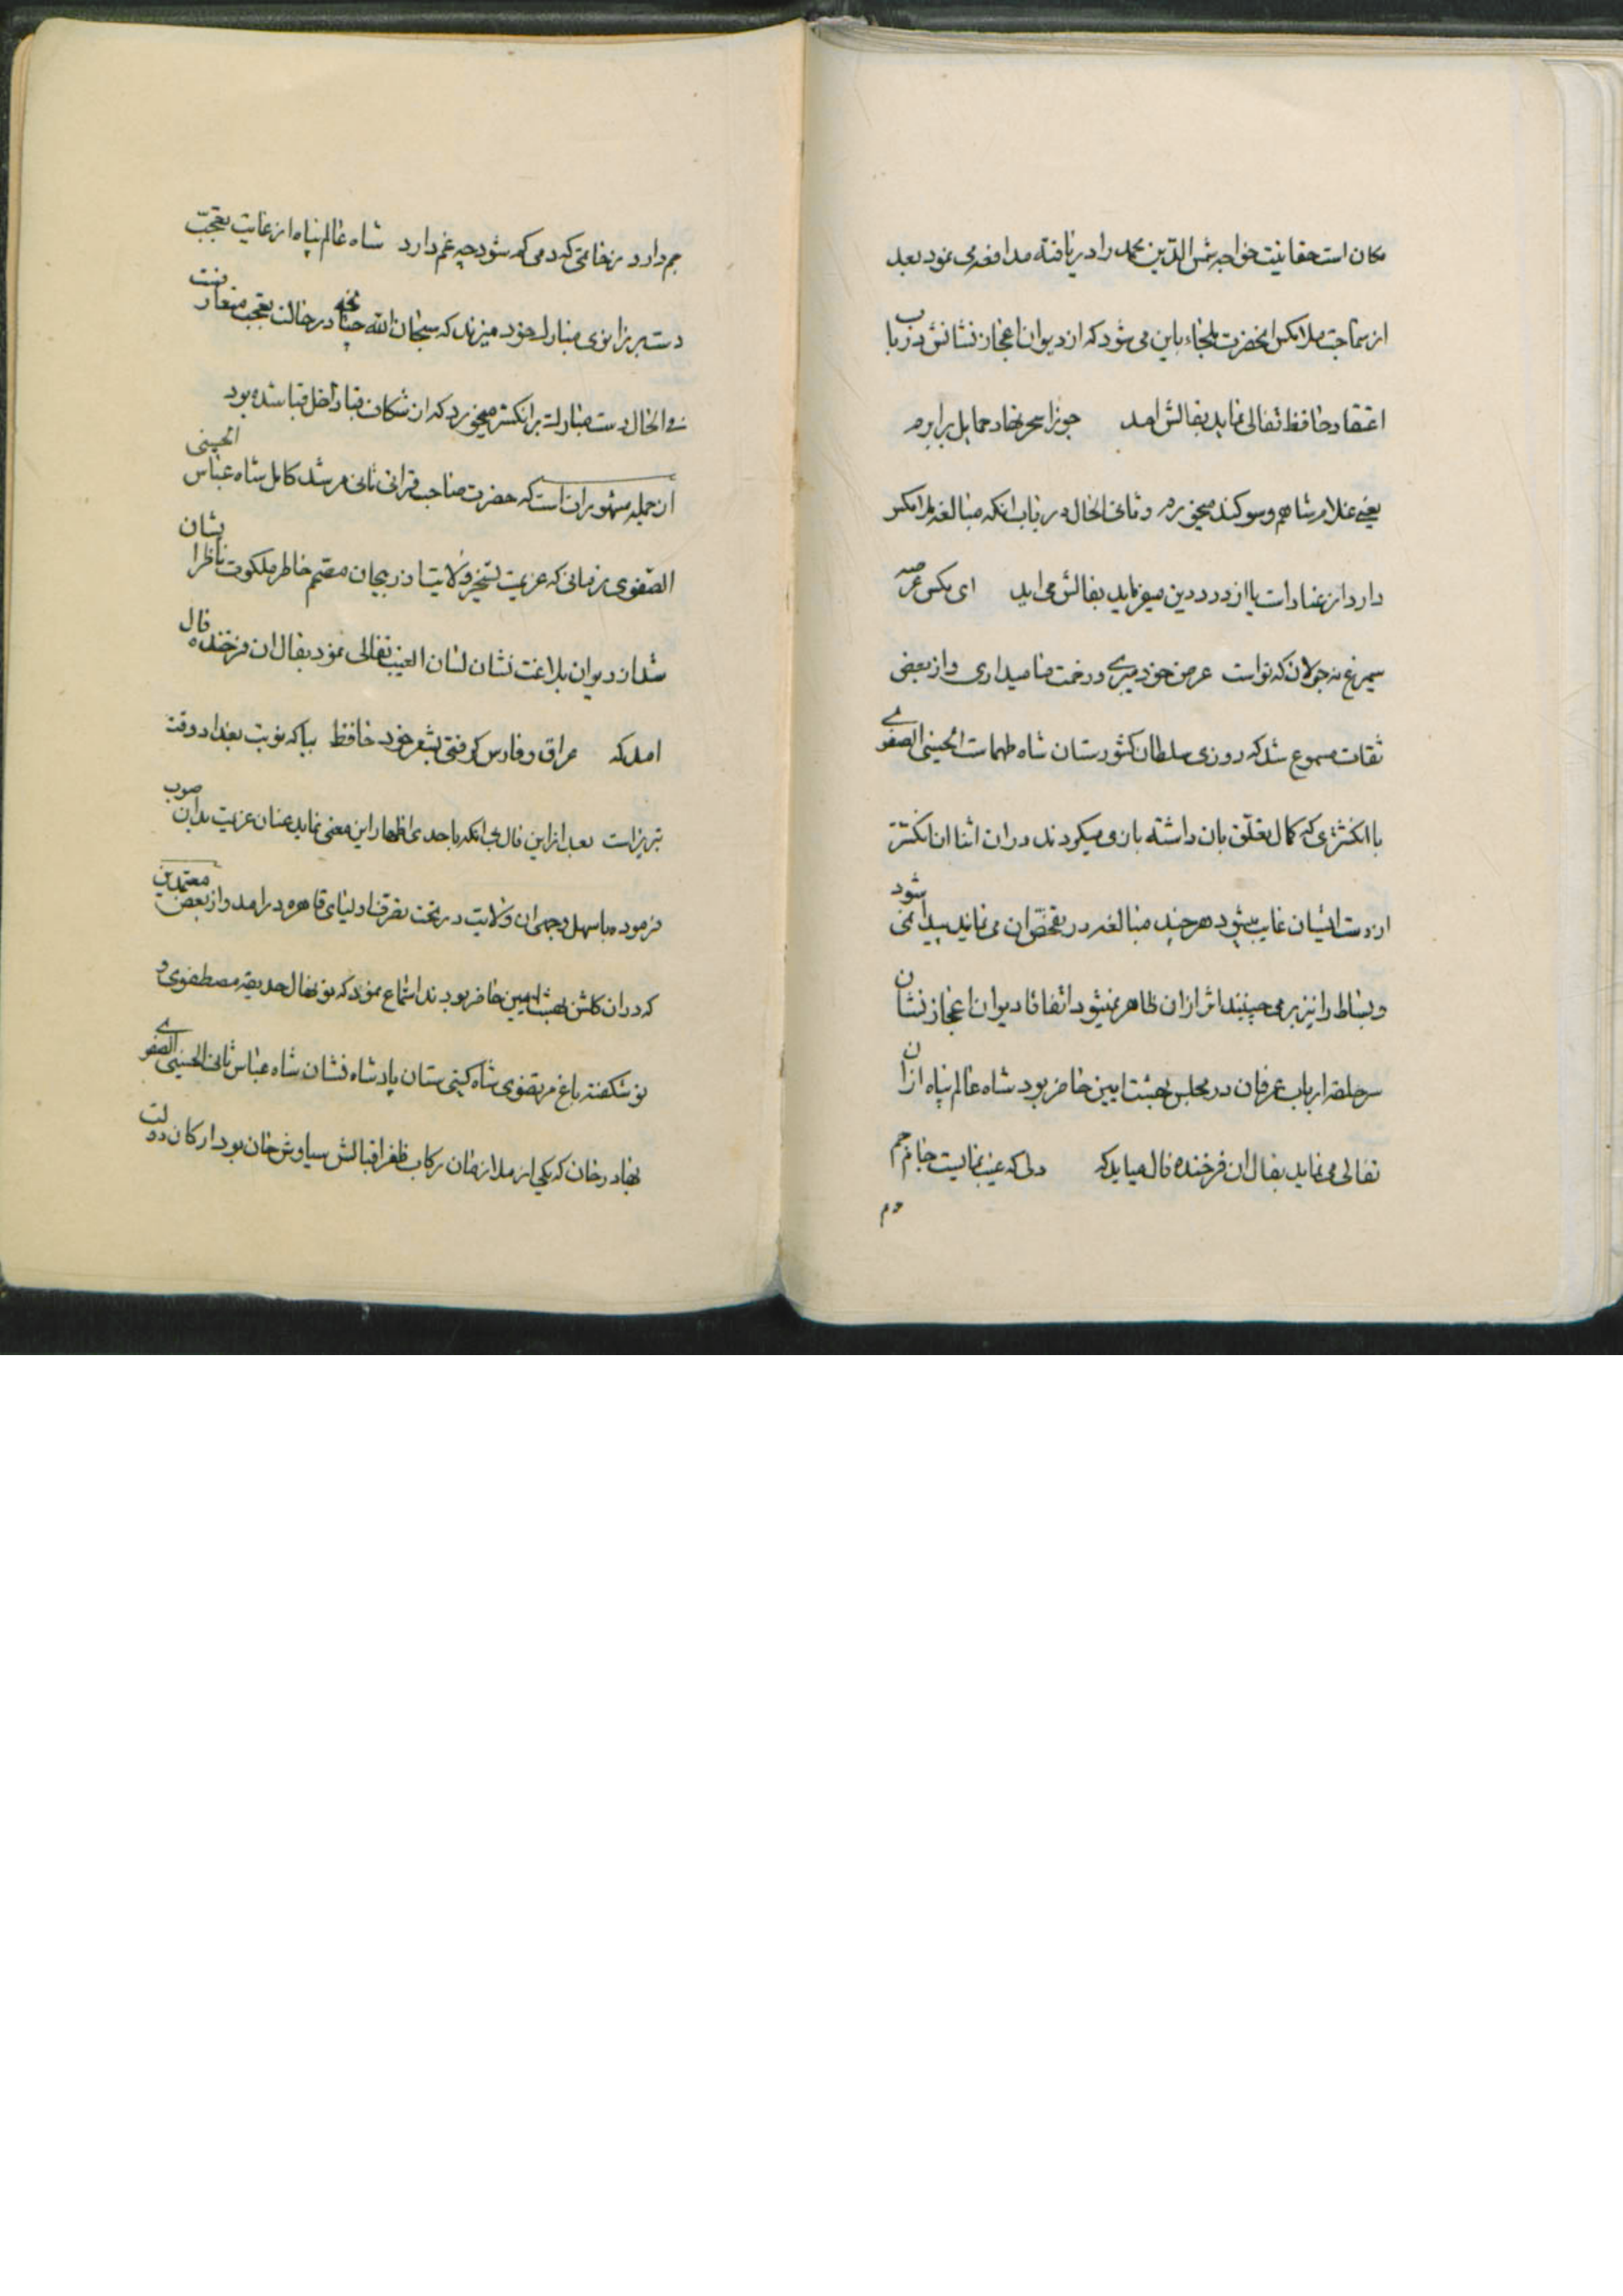 مکان است حقانیت خواجه شمس الدین محمد را دریافته مدافعه می نمود بعد
از سماجت ملا مکس انحضرت ملجاء باین می شود که از دیوان اعجاز نشانش در باب
اعتقاد حافظ تفالی نماید بفالش امد جوزا سحر نهاد حمایل برابرم
یعنی غلام شاهم و سوکند میخورم و ثانی الحال در باب انکه مبالغه ملا مکس
دارد از عناد است یا از درد دین میفرماید بفالش می اید ای مکس عرصه
سیمرغ نه جولان که تو است عرض خود میبری و زحمت ما میداری و از بعضی
ثقات مسموع شد که روزی سلطان کشورستان شاه طهماست الحسینی الصفوی
با انکشتری که کمال تعلق بان داشته بازی میکردند در ان اثنا ان انکشتر
از دست ایشان غایب میشود هر چند مبالغه در تفحص ان می نمایند پیدا نمی شود
و بساط را نیز بر می چینند اثر از ان ظاهر نمیشود اتفاقا دیوان اعجاز نشان
سرحلقه ارباب عرفان در مجلس بهشت ایین حاضر بود شاه عالم پناه از ان
تفالی می نماید بفال ان فرخنده فال میاید که دلی که غیب نمایست جام جم
جم دارد ز خاتمی که دمی کم شود چه غم دارد شاه عالم پناه از غایت تعجب
دست بر زانوی مبارک خود میزند که سبحان الله چنانچه در حالت تعجب متعارفست
فی الحال دست مبارک بر انکشتر میخورد که از شکاف قبا داخل قبا شده بود
از جمله مشهوران است که حضرت صاحب قرانی ثانی مرشد کامل شاه عباس الحسینی
الصفوی زمانی که عزیمت تسخیر ولایت اذربیجان مصمم خاطر ملکوت ناظر ایشان
شد از دیوان بلاغت نشان لسان الغیب تفالی نمود بفال ان فرخنده فال
امد که عراق و فارس کرفتی بشعر خود حافظ بیا که نوبت بغداد و وقت
تبریز است بعد از این فال بی انکه با حدی اظهار این معنی نماید عنان عزیمت بدان صوب
فرموده باسهل وجهی ان ولایت در تحت تصرف اولیای قاهره در امد و از بعضی معتمدین
که در ان کلشن بهشت ایین حاضر بودند استماع نمود که نو نهال حدیقه مصطفوی و
نو شکفته باغ مرتضوی شاه کیتی ستان پادشاه نشان شاه عباس ثانی الحسینی الصفوی
بهادر خان که یکی از ملازمان رکاب ظفر اقبالش سیاوش خان بود ارکان دولت